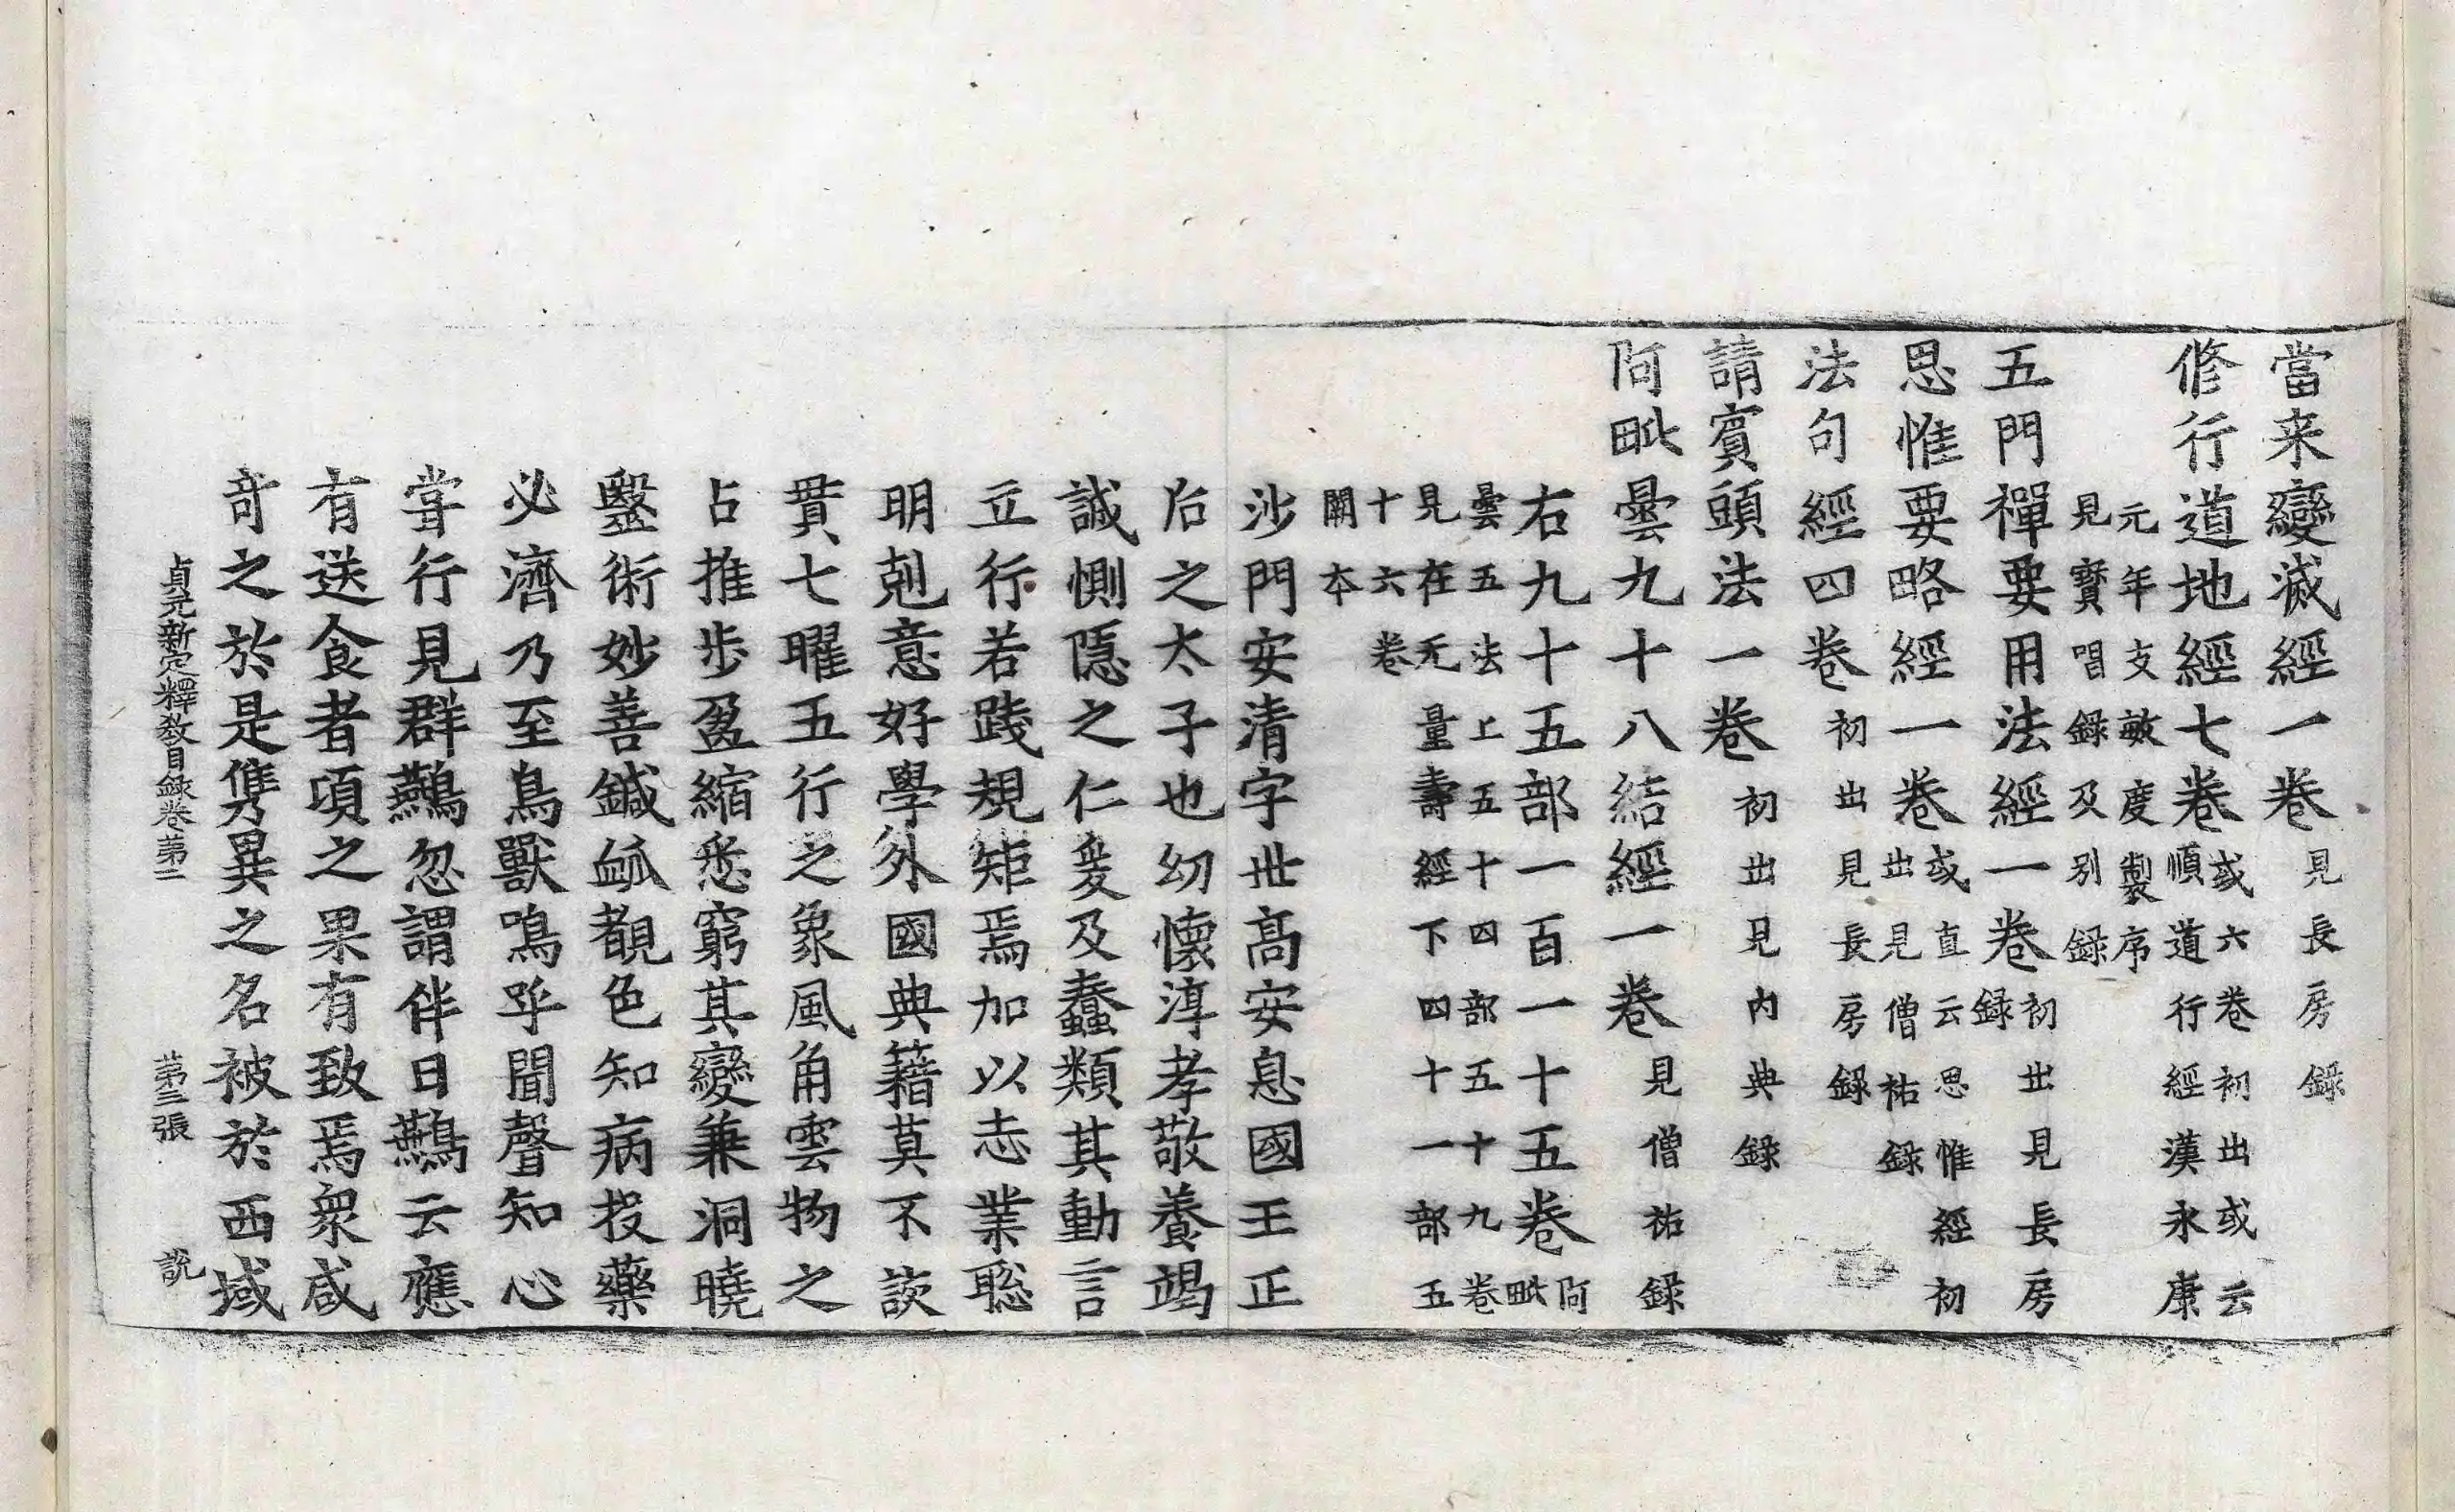 當来變滅經一卷見長房錄
修行道地經七卷或六卷初出或云順道行經漢永康
元年支敏度製序見寶唱録及别録
五門禪要用法經一卷初出見長房録
思惟要略經一卷或直云思惟經初出見僧祐録
法句經四卷初出見長房録
請賓頭法一卷初出見内典録
阿毗曇九十八結經一卷見僧祐録
右九十五部一百一十五卷阿毗
曇五法上五十四部五十九卷
見在无量壽經下四十一部五
十六卷
闕本
沙門安清字世髙安息國王正
后之太子也幼懷淳孝敬養竭
誠惻隱之仁爰及蠢類其動言
立行若踐規矩焉加以志業聡
明剋意好學外國典籍莫不談
貫七曜五行之象風角雲物之
占推步盈縮悉窮其變兼洞曉
醫術妙善鍼䘑覩色知病投藥
必濟乃至鳥獸鳴呼聞聲知心
甞行見群鷰忽謂伴曰鷰云應
有送食者項之果有致焉衆咸
竒之於是儁異之名被於西域
貞元新定釋教目録卷苐二 苐三張 說